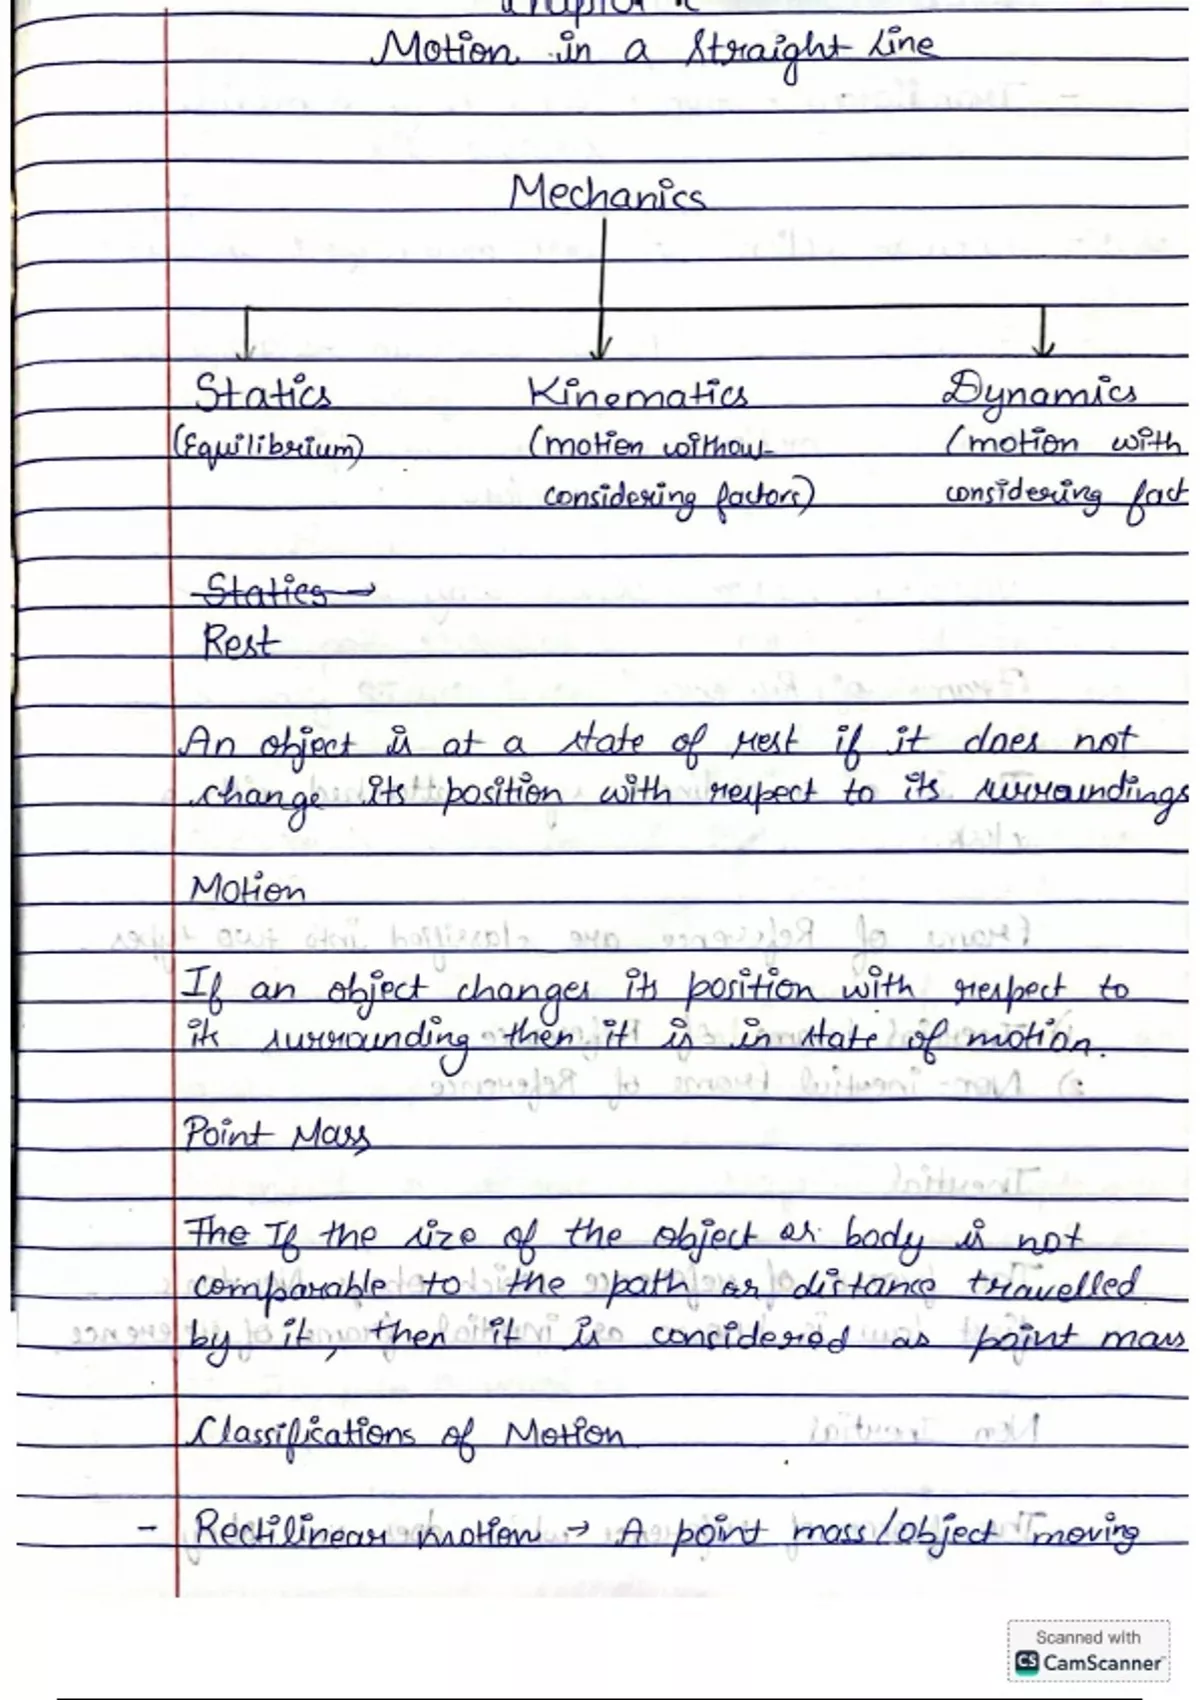 Chapter 2
Motion in a Straight Line
Mechanics
Statics Kinematics Dynamics
(Equilibrium) (motion without (motion with
considering factors) considering fact
Statics →
Rest
An object is at a state of rest if it does not
change its position with respect to its surroundings
Motion
If an object changes its position with respect to
its surrounding then it is in state of motion.
Point Mass
The If the size of the object or body is not
comparable to the path or distance travelled
by it, then it is considered as point mass
Classifications of Motion
- Rectilinear motion → A point mass/object moving
Scanned with
CS CamScanner